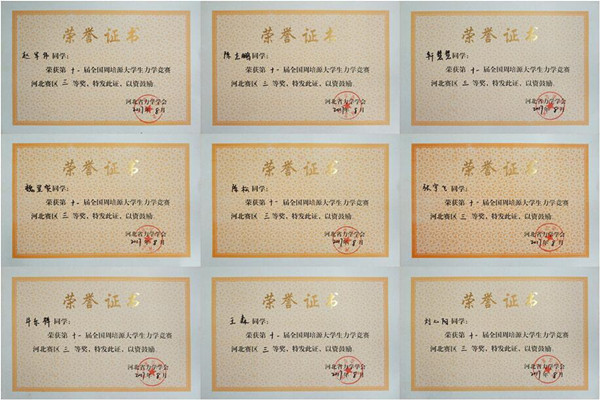 荣誉证书
赵 军 伟 同学:
荣获第 十一 届全国周培源大学生力学竞赛
河北赛区 三 等奖,特发此证,以资鼓励。
河北省力学学会
2017年8月
荣誉证书
陈 主 鹏 同学:
荣获第 十一 届全国周培源大学生力学竞赛
河北赛区 三 等奖,特发此证,以资鼓励。
河北省力学学会
2017年8月
荣誉证书
慧慧 同学:
荣获第 十一 届全国周培源大学生力学竞赛
河北赛区 三 等奖,特发此证,以资鼓励。
河北省力学学会
2017年8月
荣誉证书
同学:
荣获第 十一 届全国周培源大学生力学竞赛
河北赛区 三 等奖,特发此证,以资鼓励。
河北省力学学会
2017年8月
荣誉证书
陈松 同学:
荣获第 十一 届全国周培源大学生力学竞赛
河北赛区 三 等奖,特发此证,以资鼓励。
河北省力学学会
2017年8月
荣誉证书
张宇飞 同学:
荣获第 十一 届全国周培源大学生力学竞赛
河北赛区 三 等奖,特发此证,以资鼓励。
河北省力学学会
2017年8月
荣誉证书
同学:
荣获第 十一 届全国周培源大学生力学竞赛
河北赛区 三 等奖,特发此证,以资鼓励。
河北省力学学会
2017年8月
荣誉证书
王森 同学:
荣获第 十一 届全国周培源大学生力学竞赛
河北赛区 三 等奖,特发此证,以资鼓励。
河北省力学学会
2017年8月
荣誉证书
刘心阳 同学:
荣获第 十一 届全国周培源大学生力学竞赛
河北赛区 三 等奖,特发此证,以资鼓励。
河北省力学学会
2017年8月